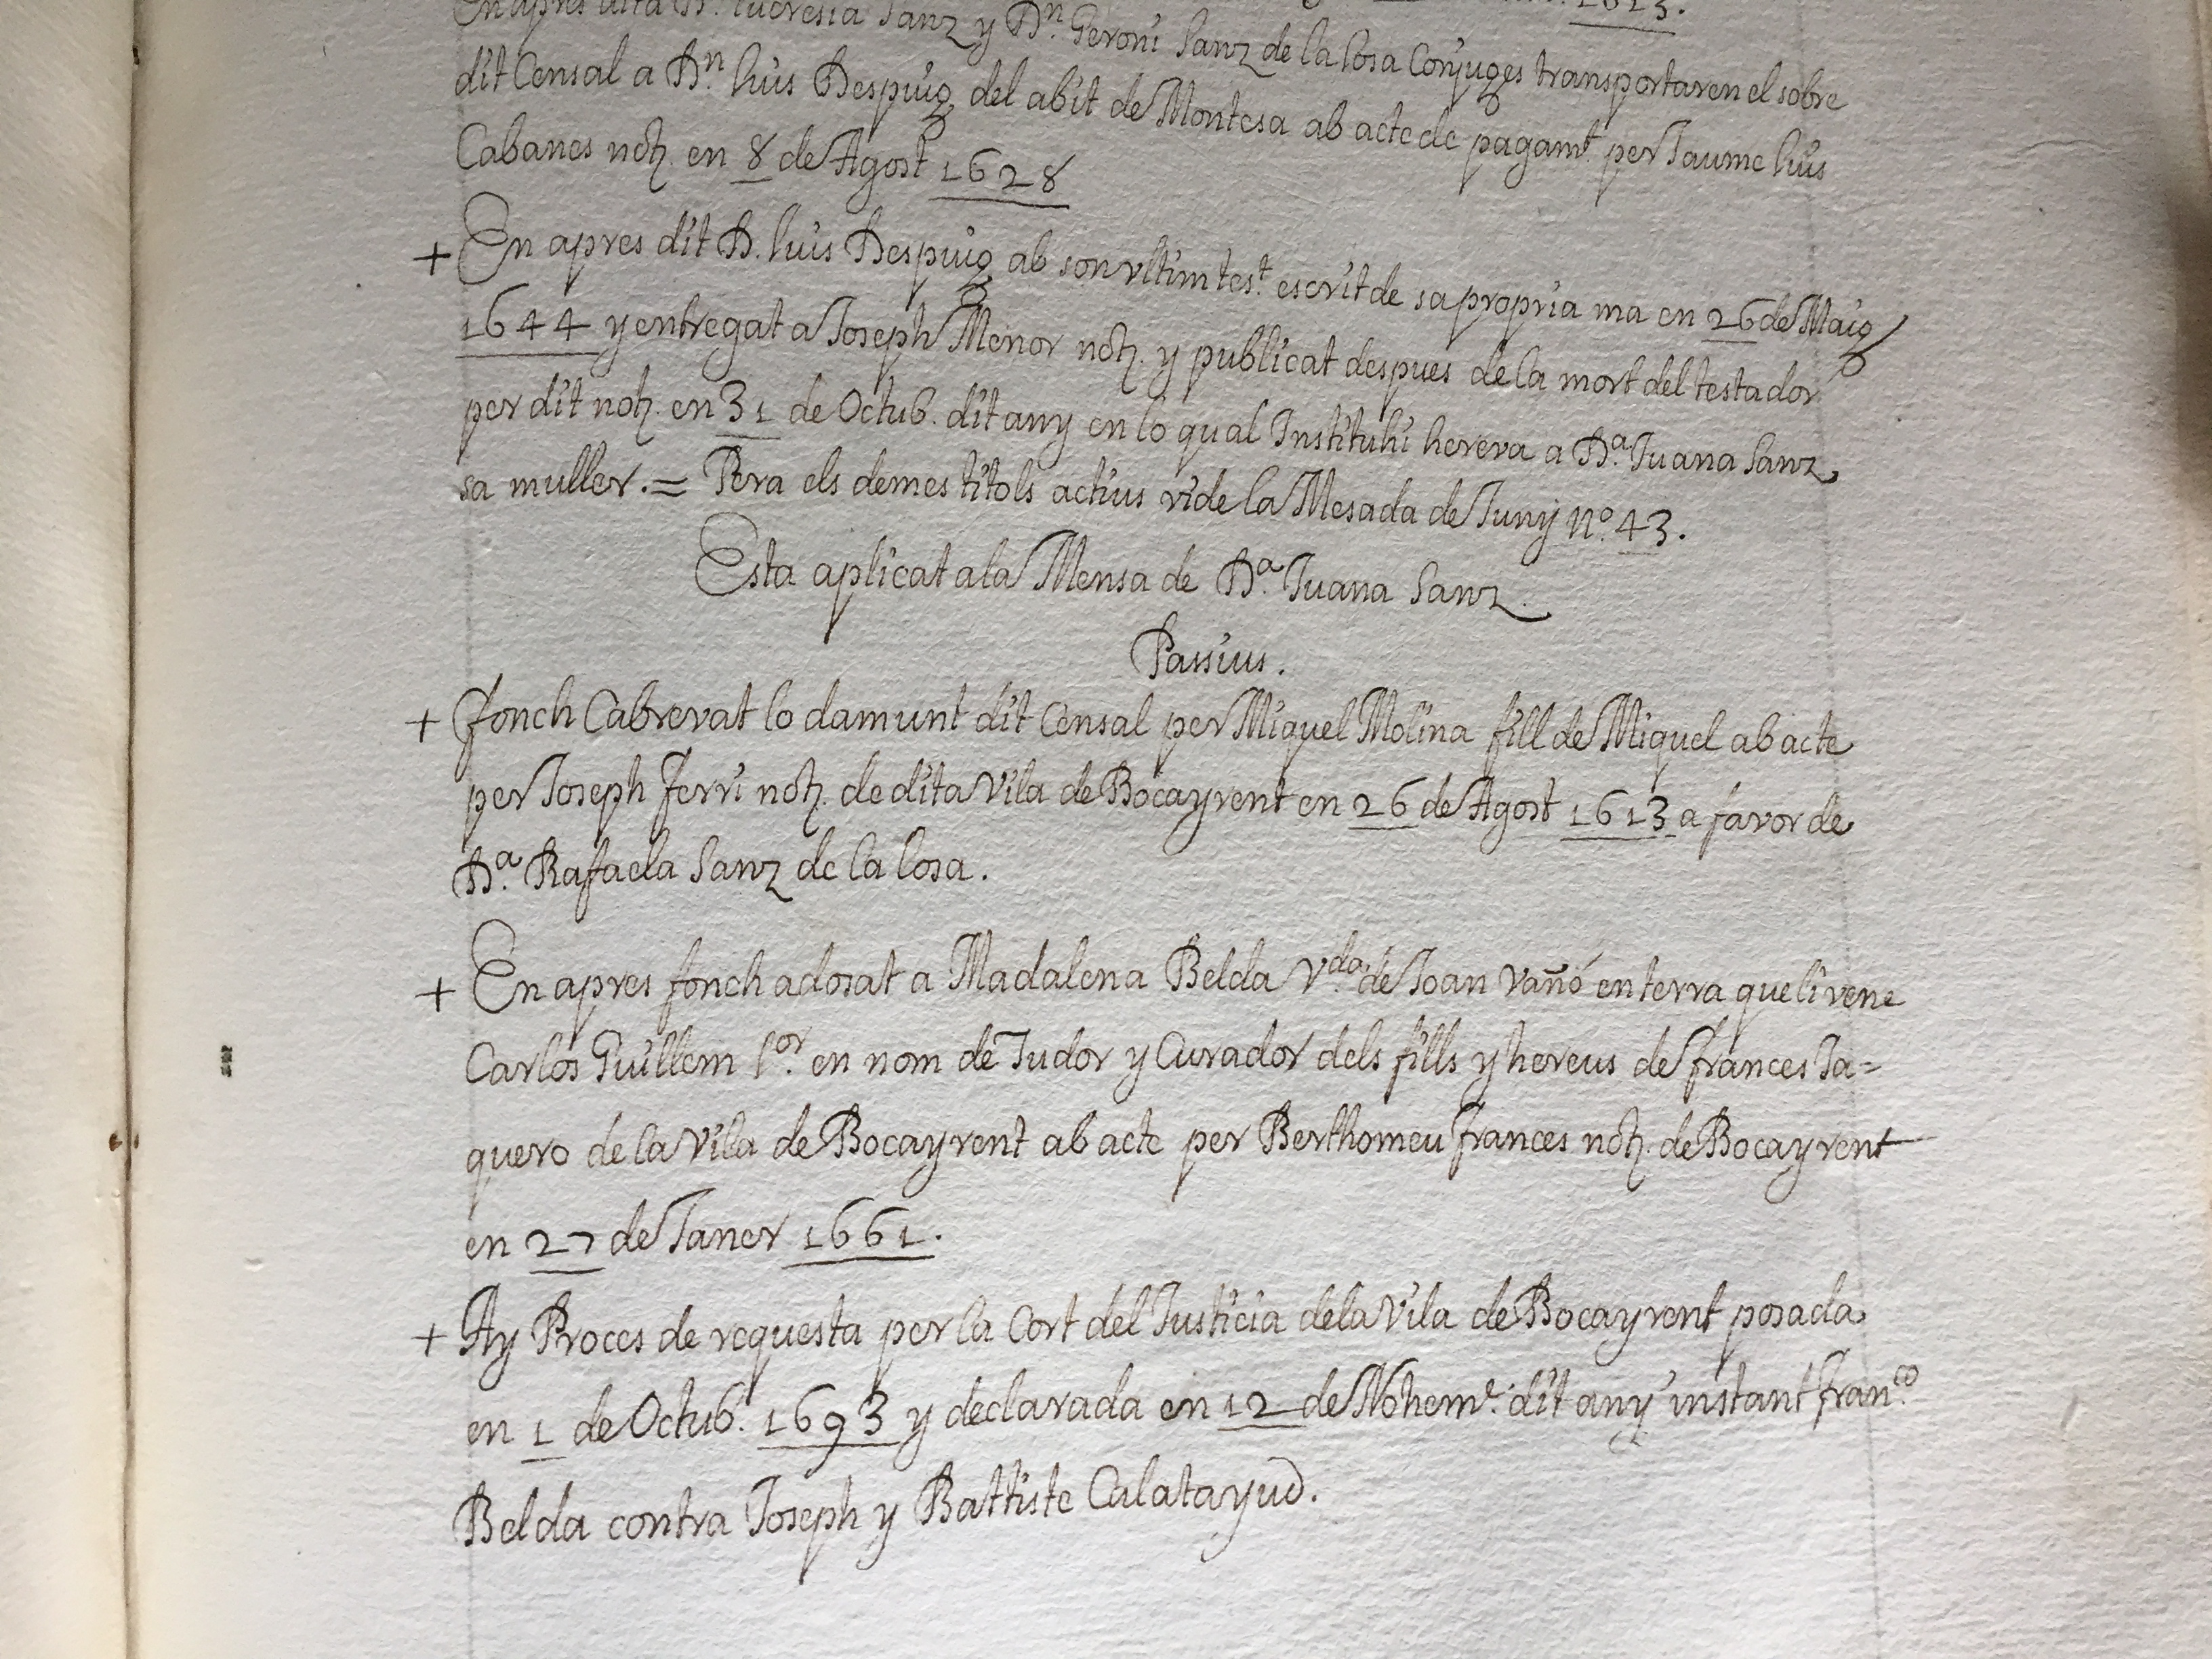 1613.
En apres dita Dª. lucresia Sanz y Dⁿ. Geroni Sanz de la losa Conjuges transportaren el sobre
dit Censal a Dⁿ. luis Despuig del abit de Montesa ab acte de pagamt. per Jaume luis
Cabanes noth. en 8 de Agost 1628
+ En apres dit D. luis Despuig ab son vltim test. escrit de sa propria ma en 26 de Maig
1644 y entregat a Joseph Menor noth. y publicat despues de la mort del testador
per dit noth. en 31 de Octub. dit any en lo qual Instituhi hereva a Dª. Juana Sanz
sa muller. = Pera els demes titols actius vide la Mesada de Juny nº. 43.
Esta aplicat ala Mensa de Dª. Juana Sanz.
Passius.
+ fonch Cabrevat lo damunt dit Censal per Miquel Molina fill de Miquel ab acte
per Joseph ferri noth. de dita Vila de Bocayrent en 26 de Agost 1613 a favor de
Dª. Rafaela Sanz de la losa.
+ En apres fonch adosat a Madalena Belda Vda. de Joan Vañó en terra que li vene
Carlos Guillem lor. en nom de Tudor y Curador dels fills y hereus de frances Ja=
quero de la Vila de Bocayrent ab acte per Berthomeu frances noth. de Bocayrent
en 27 de Janer 1661.
+ Ay Proces de requesta per la Cort del Justicia dela Vila de Bocayrent posada
en 1 de Octub. 1693 y declarada en 12 de Nohemᵉ. dit any instant franco.
Belda contra Joseph y Battiste Calatayud.